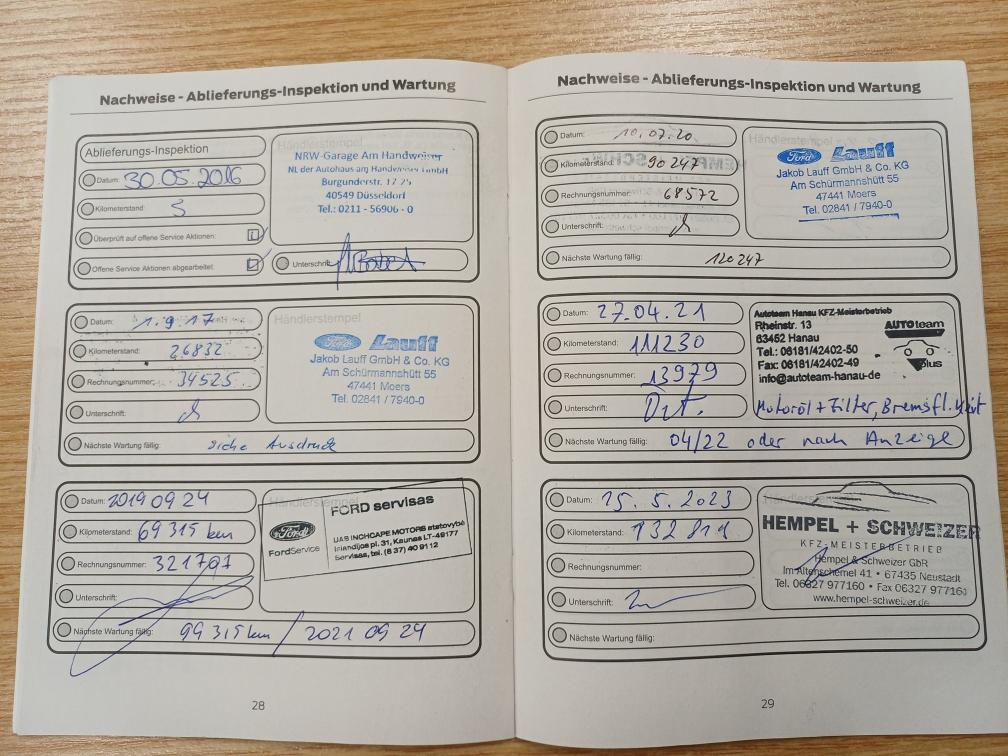 Nachweise - Ablieferungs-Inspektion und Wartung
Ablieferungs-Inspektion
Datum: 30.05.2016
Kilometerstand: 5
Überprüft auf offene Service Aktionen:
Offene Service Aktionen abgearbeitet:
Händlerstempel
NRW-Garage Am Handweiser
NL der Autohaus am Handweiser GmbH
Burgunderstr. 17-25
40549 Düsseldorf
Tel.: 0211 - 56906 - 0
Unterschrift:
Datum: 1.9.17
Kilometerstand: 26832
Rechnungsnummer: 34525
Unterschrift:
Händlerstempel
Ford Lauff
Jakob Lauff GmbH & Co. KG
Am Schürmannshütt 55
47441 Moers
Tel. 02841 / 7940-0
Nächste Wartung fällig: siehe Ausdruck
Datum: 2019 09 24
Kilometerstand: 69 315 km
Rechnungsnummer: 321797
Unterschrift:
Händlerstempel
Ford
FordService
FORD servisas
UAB INCHCAPE MOTORS atstovybė
Islandijos pl. 31, Kaunas LT-49177
Servisas, tel. (8 37) 40 9112
Nächste Wartung fällig: 99 315 km / 2021 09 24
28
Nachweise - Ablieferungs-Inspektion und Wartung
Datum: 10.07.20
Kilometerstand: 90247
Rechnungsnummer: 68572
Unterschrift:
Händlerstempel
Ford Lauff
Jakob Lauff GmbH & Co. KG
Am Schürmannshütt 55
47441 Moers
Tel. 02841 / 7940-0
Nächste Wartung fällig: 120247
Datum: 27.04.21
Kilometerstand: 111230
Rechnungsnummer: 13979
Unterschrift:
Autoteam Hanau KFZ-Meisterbetrieb
Rheinstr. 13
63452 Hanau
Tel.: 06181/42402-50
Fax: 06181/42402-49
info@autoteam-hanau.de
AUTOteam
plus
Motoröl + Filter, Bremsfl.
Nächste Wartung fällig: 04/22 oder nach Anzeige
Datum: 15.5.2023
Kilometerstand: 132811
Rechnungsnummer:
Unterschrift:
Händlerstempel
HEMPEL + SCHWEIZER
KFZ-MEISTERBETRIEB
Hempel & Schweizer GbR
Im Altenschemel 41 • 67435 Neustadt
Tel. 06327 977160 • Fax 06327 977161
www.hempel-schweizer.de
Nächste Wartung fällig:
29